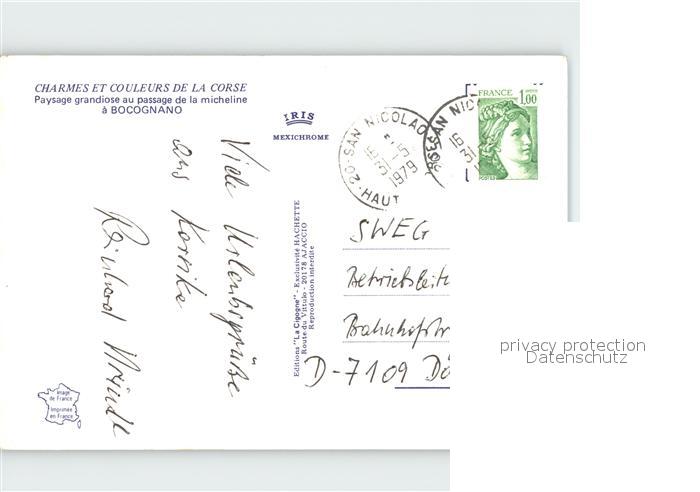 CHARMES ET COULEURS DE LA CORSE
Paysage grandiose au passage de la micheline
à BOCOGNANO
IRIS
MEXICHROME
Viele Urlaubsgrüße
aus Korsika
Reinhard
Editions "La Cigogne" - Exclusivité HACHETTE
Route du Vittulo - 20178 AJACCIO
Reproduction interdite
Image
de France
Imprimée
en France
20-SAN NICOLAO
16
31-5
1979
-HAUT
SAN NIC
16
31
FRANCE
1,00
SWEG
Betriebsleit
Bahnhofstr
D-7109 Dö
privacy protection
Datenschutz